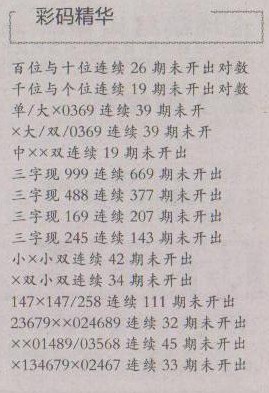 彩码精华
百位与十位连续 26 期未开出对数
千位与个位连续 19 期未开出对数
单/大×0369 连续 39 期未开
×大/双/0369 连续 39 期未开
中××双连续 19 期未开出
三字现 999 连续 669 期未开出
三字现 488 连续 377 期未开出
三字现 169 连续 207 期未开出
三字现 245 连续 143 期未开出
小×小双连续 42 期未开出
×双小双连续 34 期未开出
147×147/258 连续 111 期未开出
23679××024689 连续 32 期未开出
××01489/03568 连续 45 期未开出
×134679×02467 连续 33 期未开出